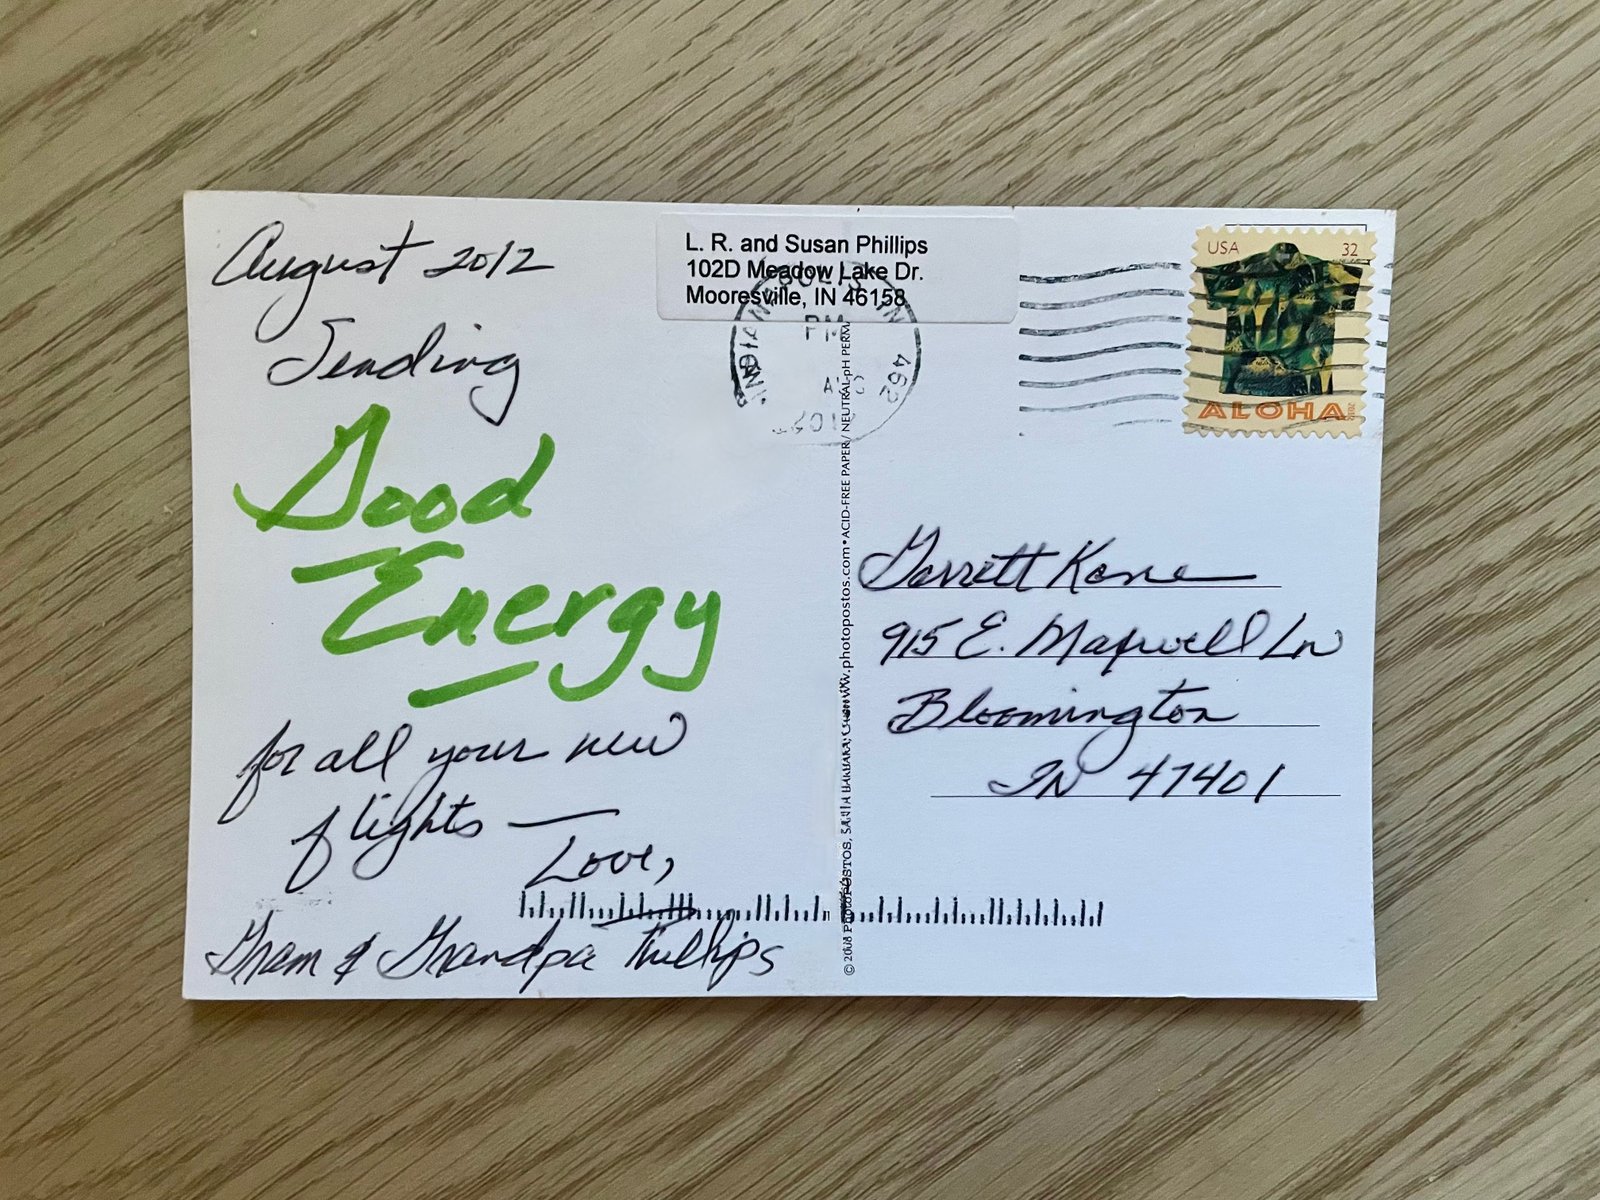 August 2012
Sending
Good
Energy
for all your new
flights —
Love,
Gram & Grandpa Phillips
L. R. and Susan Phillips
102D Meadow Lake Dr.
Mooresville, IN 46158
INDIANAPOLIS IN 462
PM
USA 32
ALOHA
2012
Garrett Kane
915 E. Maxwell Ln
Bloomington
IN 47401
© 2008 PHOTOPOSTOS, SANTA BARBARA, www.photopostos.com • ACID-FREE PAPER / NEUTRAL-pH PERMA